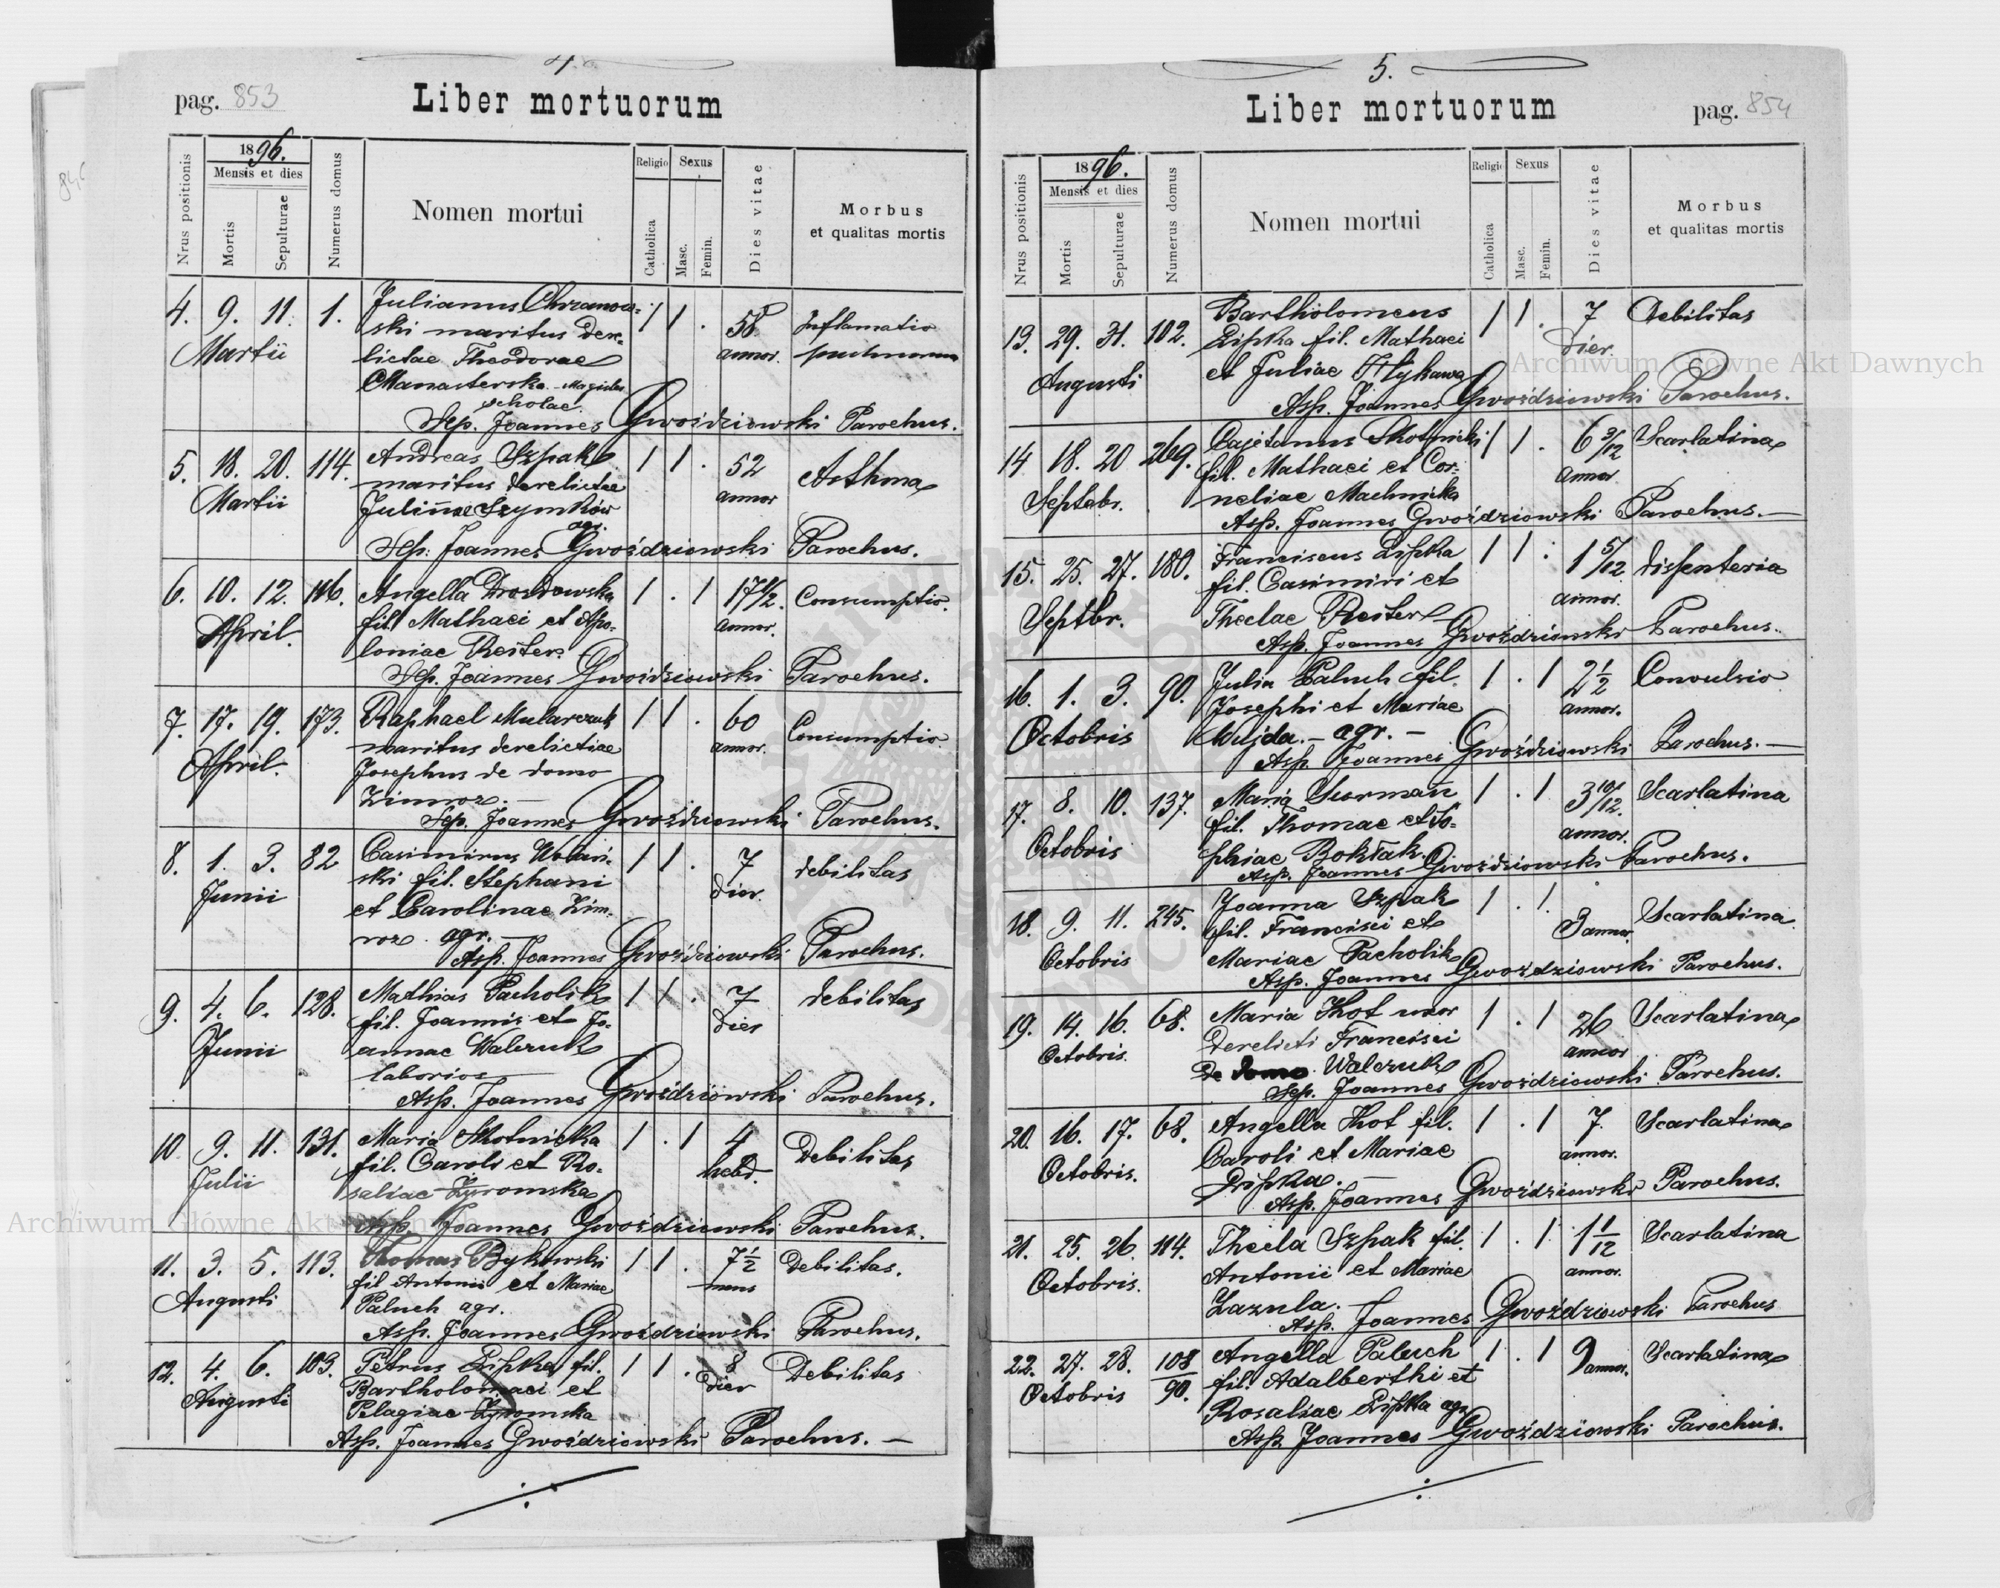 4
pag. 853
Liber mortuorum
Nrus positionis
1896.
Mensis et dies
Mortis
Sepulturae
Numerus domus
Nomen mortui
Religio
Catholica
Sexus
Masc.
Femin.
Dies vitae
Morbus
et qualitas mortis
4. 9. 11. 1. Julianus Chrzanow- 1 1 . 58 Inflamatio
Martii ski maritus der- annor. pulmonum
lictae Theodorae
Manasterska - Magister
scholae.
Sep. Joannes Gwoździowski Parochus.
5. 18. 20. 114. Andreas Szpak 1 1 . 52 Asthma
Martii maritus derelictae annor
Julinae Szymków
agr.
Sep. Joannes Gwoździowski Parochus.
6. 10. 12. 116. Angella Drozdowska 1 . 1 17 1/2. Consumptio.
April. fil. Mathaei et Apo- annor.
loniae Reiter.
Sep. Joannes Gwoździowski Parochus.
7. 17. 19. 173. Raphael Mularczuk 1 1 . 60 Consumptio
April. maritus derelictiae annor.
Josephus de domo
Zimroz. —
Sep. Joannes Gwoździowski Parochus.
8. 1. 3. 82 Casimirus 1 1 . 7 debilitas
Junii ski fil. Stephani dier.
et Carolinae Zim-
roz. agr. —
Asp. Joannes Gwoździowski Parochus.
9. 4. 6. 128. Mathias Pacholik 1 1 . 7 debilitas
Junii fil. Joannis et Jo- dies
annae Walczuk
laborios
Asp. Joannes Gwoździowski Parochus.
10. 9. 11. 131. Maria Skotnicka 1 . 1 4 Debilitas
Julii fil. Caroli et Ro- hebd.
saliae Żyromska
Asp. Joannes Gwoździowski Parochus.
11. 3. 5. 113. Thomas Bykowski 1 1 . 7 1/2 Debilitas.
Augusti fil. Antonii et Mariae mens
Paluch agr.
Asp. Joannes Gwoździowski Parochus.
12. 4. 6. 103. Petrus Lipka fil. 1 1 . 8 Debilitas
Augusti Bartholomaei et dier
Pelagiae Żyromska
Asp. Joannes Gwoździowski Parochus. —
5.
Liber mortuorum
pag. 854
Nrus positionis
1896.
Mensis et dies
Mortis
Sepulturae
Numerus domus
Nomen mortui
Religio
Catholica
Sexus
Masc.
Femin.
Dies vitae
Morbus
et qualitas mortis
13. 29. 31. 102. Bartholomeus 1 1 . 7 Debilitas
Augusti Lipka fil. Mathaei dier.
et Juliae
Asp. Joannes Gwoździowski Parochus.
14 18. 20 269. Cajetanus Skotnicki 1 1 . 6 9/12 Scarlatina
Septebr. fil. Mathaei et Cor- annor
neliae Machnicka
Asp. Joannes Gwoździowski Parochus. —
15. 25. 27. 180. Franciscus Lipka 1 1 . 1 5/12 disenteria
Septbr. fil. Casimiri et annor.
Theclae Reiter
Asp. Joannes Gwoździowski Parochus.
16. 1. 3. 90. Julia Paluch fil. 1 . 1 2 1/2 Convulsio
Octobris Josephi et Mariae annor.
Wujda. — agr. —
Asp. Joannes Gwoździowski Parochus. —
17. 8. 10. 137. Maria Surman 1 . 1 3 10/12 Scarlatina
Octobris fil. Thomae et So- annor.
phiae Boktak.
Asp. Joannes Gwoździowski Parochus.
18. 9. 11. 245. Joanna Szpak 1 . 1. 3 annor. Scarlatina.
Octobris fil. Francisci et
Mariae Pacholik
Asp. Joannes Gwoździowski Parochus.
19. 14. 16. 68. Maria Kot uxor 1 . 1 26 Scarlatina
Octobris. derelicti Francisci annor
de domo Walczuk
Sep. Joannes Gwoździowski Parochus.
20. 16. 17. 68. Angella Kot fil. 1 . 1 7. Scarlatina
Octobris. Caroli et Mariae annor.
Lipka. —
Asp. Joannes Gwoździowski Parochus.
21. 25. 26. 114. Thecla Szpak fil. 1 . 1. 1 1/12 Scarlatina
Octobris. Antonii et Mariae annor.
Zazula. —
Asp. Joannes Gwoździowski Parochus
22. 27. 28. 108/90. Angella Paluch 1 . 1 9 annor. Scarlatina
Octobris fil. Adalberthi et
Rosaliae Lipka agr
Asp. Joannes Gwoździowski Parochus.
Archiwum Główne Akt Dawnych
Archiwum Główne Akt Dawnych